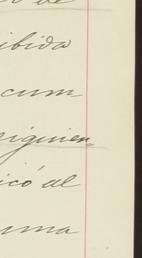 de
ibida
cum
siguien-
icó al
uma